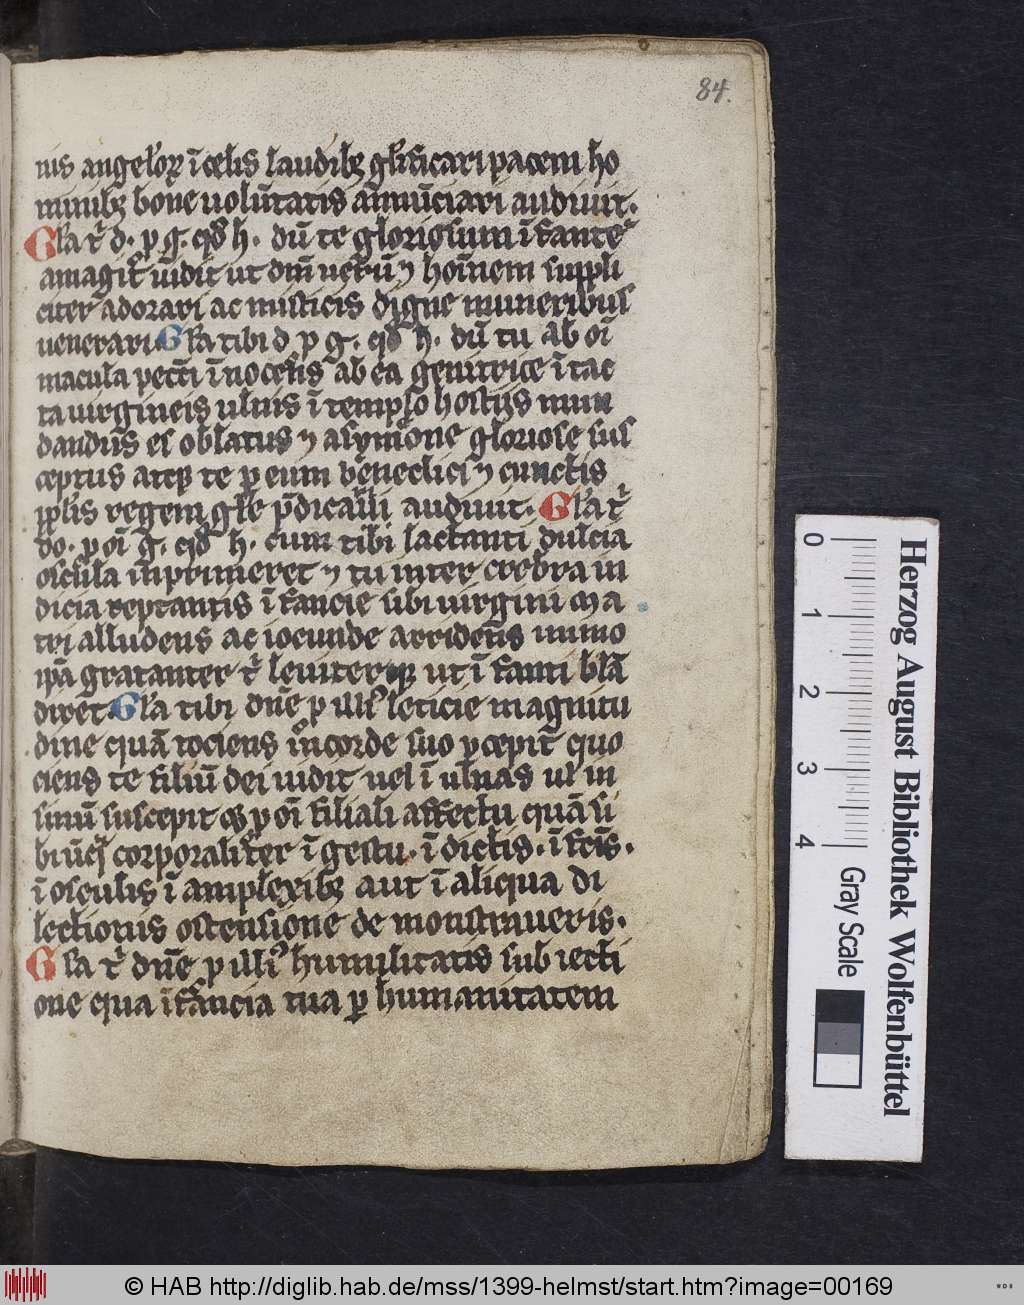 84.
nis angeloꝝ ī celis laudibꝫ glīficari pacem ho
minibꝫ bone uolūtatis annūciari audiuit.
Gl'a t' d. p g. qd h. dū te gloriosum ī fante
amagis uidit ut dm̄ uerū ⁊ hoīnem suppli
citer adorari ac misticis digne muneribus
uenerari. Gl'a tibi d p g. qd h. dū tu ab oī
macula pecc̄ti īnocens ab ea genitrice ītac
ta uirgineis ulnis ī templo hostijs mun
dandus es oblatus ⁊ a symeone gloriose sus
ceptus atqꝫ te ꝑ eum benedici ⁊ cunctis
ppl'is regem gl'e p̄dicari audiuit. Gl'a t'
do. p oī g. qd h. cum tibi lactanti dulcia
oscula inprimeret ⁊ tu inter crebra in
dicia reptantis ī fancie tibi uirgini ma
tri alludens ac iocunde arridens nimo
ip̄a gratanter t' leuiterqꝫ ut ī fanti blā
diret̄. Gl'a tibi dn̄e ꝑ illi' leticie magnitu
dine quā tociens in corde suo ꝑcepit quo
ciens te filiū dei uidit uel ī ulnas ul' in
sinū suscepit ꝑ oī filiali affectu quā si
bi ūcꝫ corporaliter ī gestu. ī dictis. ī fc̄is.
ī osculis ī amplexibꝫ aut ī aliqua di
lectionis ostensione demonstraueris.
Gl'a t' dn̄e ꝑ illi' humilitatis subiecti
one qua ī fancia tua ꝑ humanitatem
Herzog August Bibliothek Wolfenbüttel
0 1 2 3 4
Gray Scale
© HAB http://diglib.hab.de/mss/1399-helmst/start.htm?image=00169